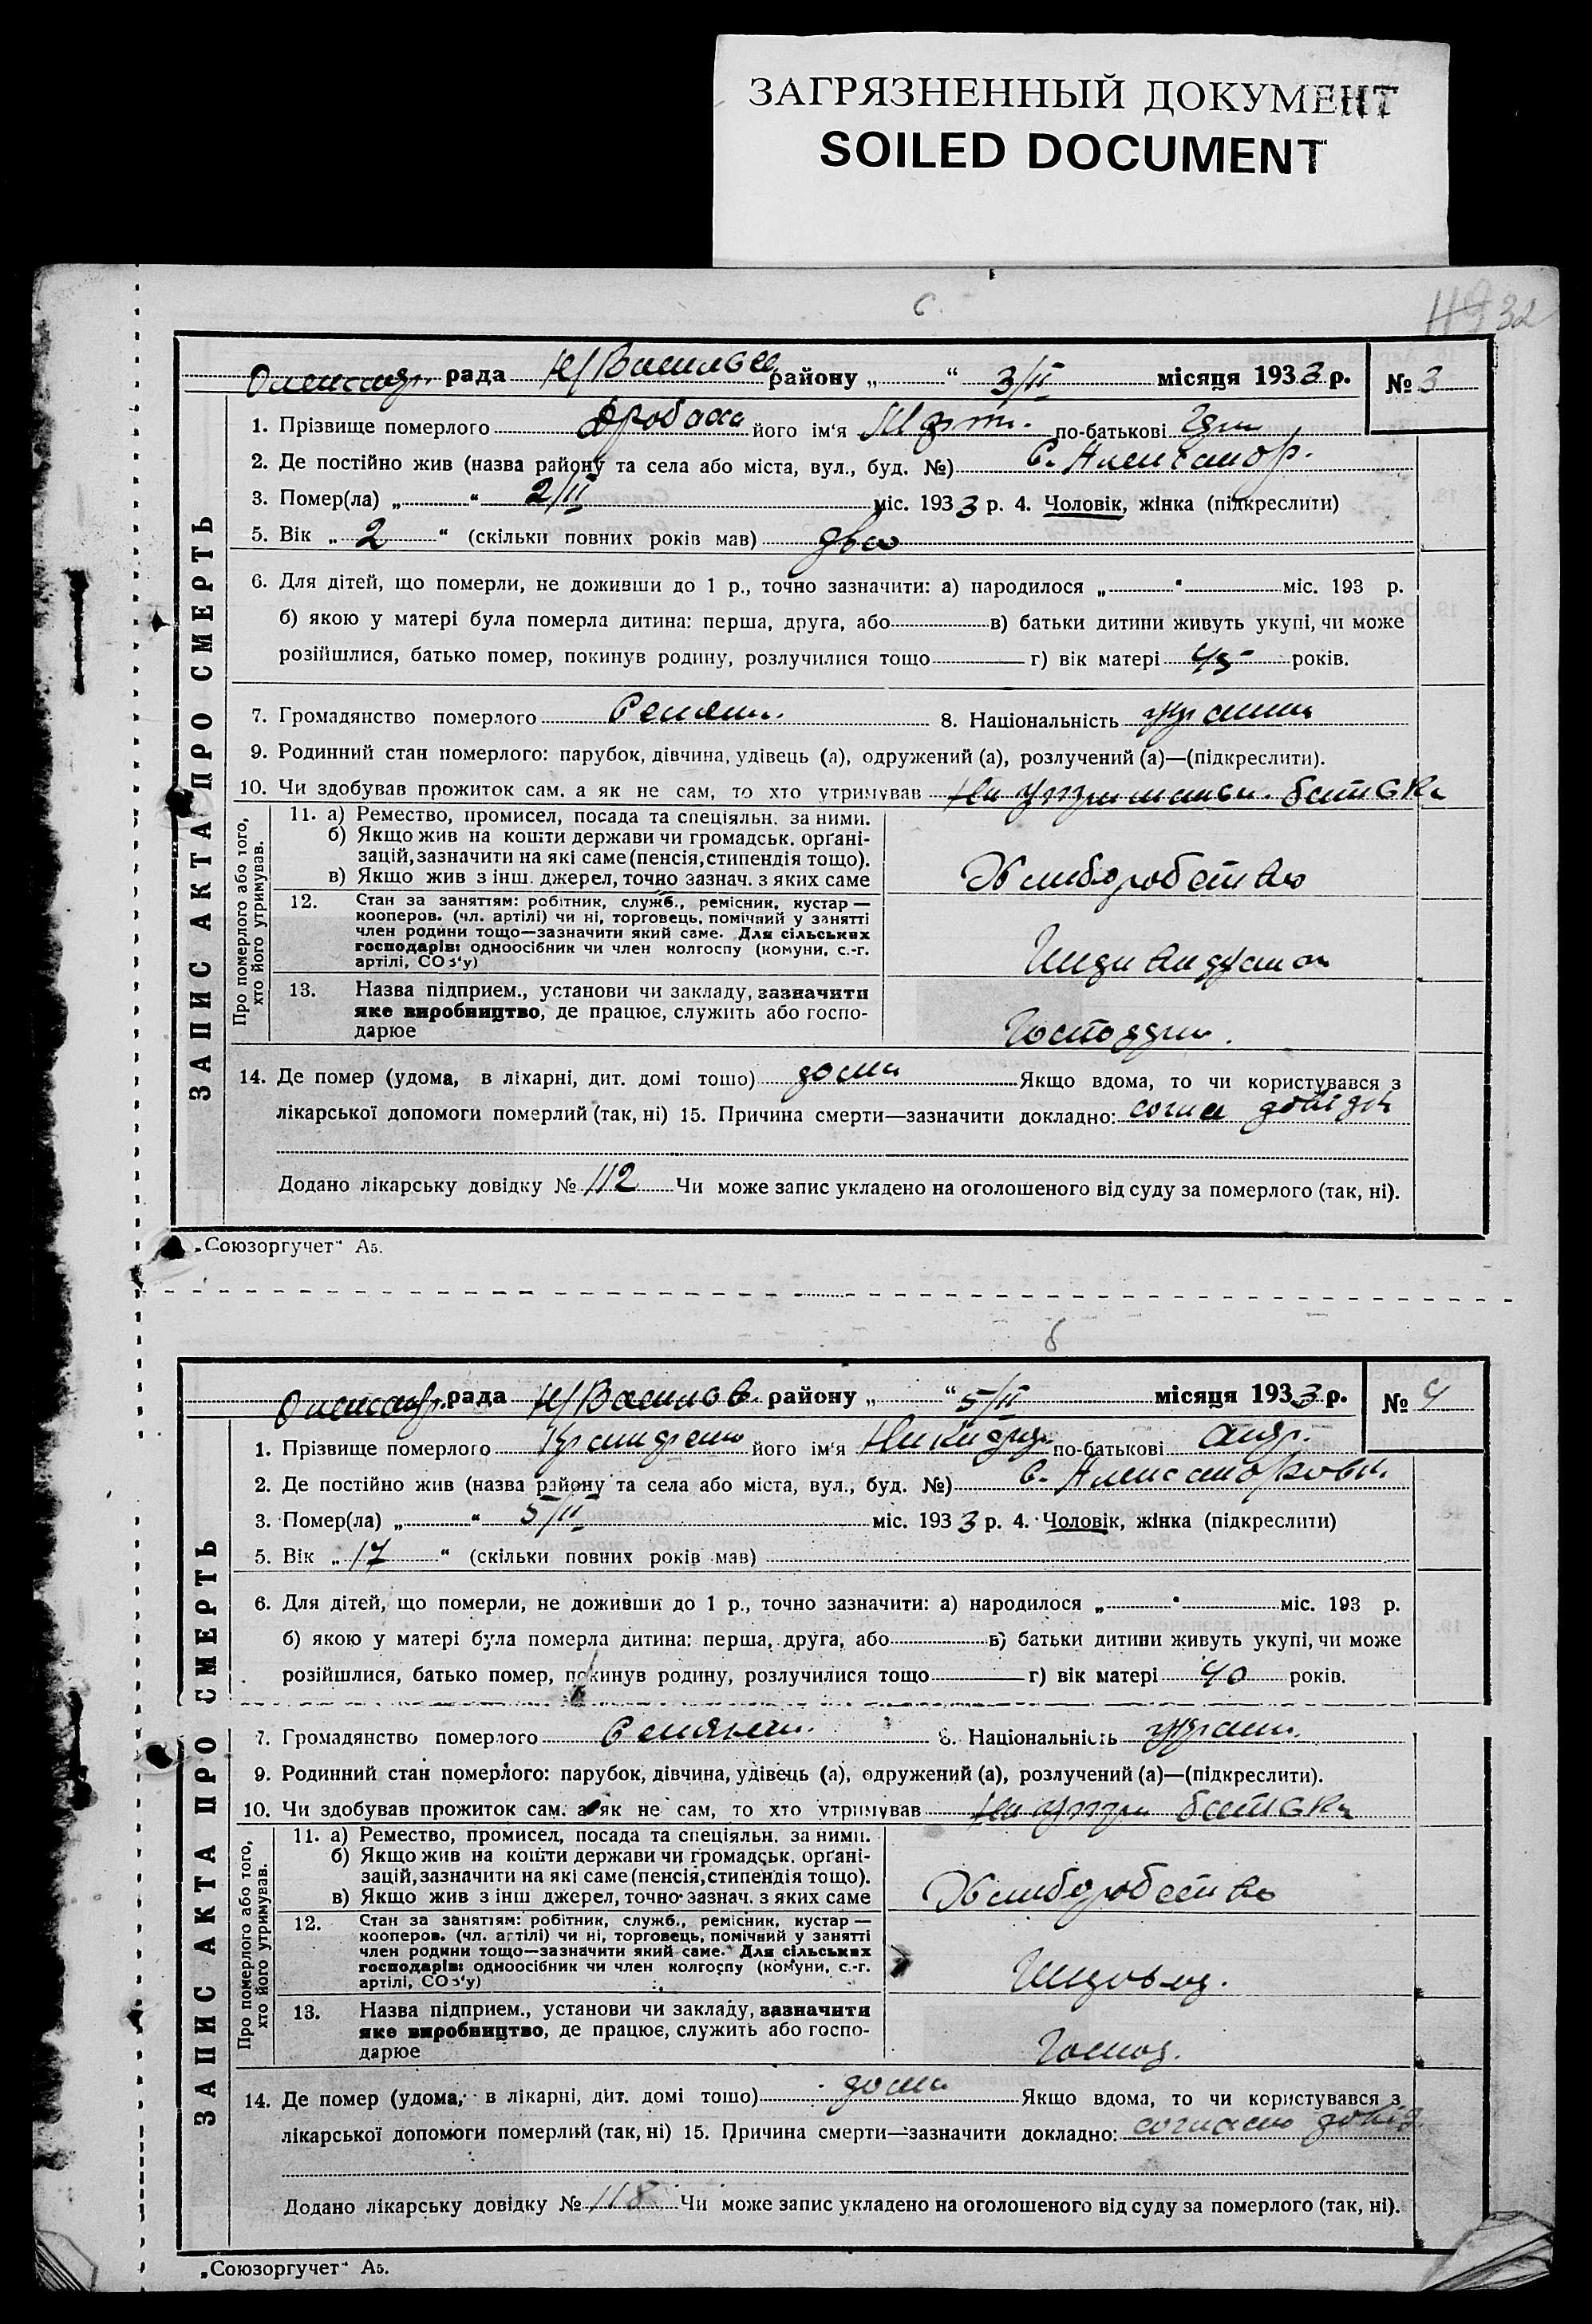 ЗАГРЯЗНЕННЫЙ ДОКУМЕНТ
SOILED DOCUMENT
32
ЗАПИС АКТА ПРО СМЕРТЬ
рада Н/Васильев району „ “ 3/II місяця 1933 р. № 3
1. Прізвище померлого його ім‘я по-батькові
2. Де постійно жив (назва району та села або міста, вул., буд. №) с. Александр.
3. Помер(ла) „ “ 2/II міс. 1933 р. 4. Чоловік, жінка (підкреслити)
5. Вік „ 2 “ (скільки повних років мав) два
6. Для дітей, що померли, не доживши до 1 р., точно зазначити: а) народилося „ “ міс. 193 р.
б) якою у матері була померла дитина: перша, друга, або в) батьки дитини живуть укупі, чи може
розійшлися, батько помер, покинув родину, розлучилися тощо г) вік матері 45 років.
7. Громадянство померлого 8. Національність
9. Родинний стан померлого: парубок, дівчина, удівець (а), одружений (а), розлучений (а)—(підкреслити).
10. Чи здобував прожиток сам. а як не сам, то хто утримував На батька
Про померлого або того, хто його утримував.
11. а) Ремество, промисел, посада та спеціяльн. за ними.
б) Якщо жив на кошти держави чи громадськ. орґані-
зацій, зазначити на які саме (пенсія, стипендія тощо).
в) Якщо жив з інш. джерел, точно зазнач. з яких саме
Хлиборобство
12. Стан за заняттям: робітник, служб., ремісник, кустар —
кооперов. (чл. артілі) чи ні, торговець, помічний у занятті
член родини тощо—зазначити який саме. Для сільських
господарів: одноосібник чи член колгоспу (комуни, с.-г.
артілі, СОЗ‘у)
13. Назва підприєм., установи чи закладу, зазначити
яке виробництво, де працює, служить або госпо-
дарює
14. Де помер (удома, в лікарні, дит. домі тощо) дома Якщо вдома, то чи користувався з
лікарської допомоги померлий (так, ні) 15. Причина смерти—зазначити докладно:
Додано лікарську довідку № 112 Чи може запис укладено на оголошеного від суду за померлого (так, ні).
„Союзоргучет“ А5.
ЗАПИС АКТА ПРО СМЕРТЬ
рада Н/Васильев. району „ “ 5/II місяця 1933 р. № 4
1. Прізвище померлого його ім‘я по-батькові Андр.
2. Де постійно жив (назва району та села або міста, вул., буд. №) с. Александровк.
3. Помер(ла) „ “ 5/II міс. 1933 р. 4. Чоловік, жінка (підкреслити)
5. Вік „ 17 “ (скільки повних років мав)
6. Для дітей, що померли, не доживши до 1 р., точно зазначити: а) народилося „ “ міс. 193 р.
б) якою у матері була померла дитина: перша, друга, або в) батьки дитини живуть укупі, чи може
розійшлися, батько помер, покинув родину, розлучилися тощо г) вік матері 40 років.
7. Громадянство померлого 8. Національність
9. Родинний стан померлого: парубок, дівчина, удівець (а), одружений (а), розлучений (а)—(підкреслити).
10. Чи здобував прожиток сам. а як не сам, то хто утримував На батька
Про померлого або того, хто його утримував.
11. а) Ремество, промисел, посада та спеціяльн. за ними.
б) Якщо жив на кошти держави чи громадськ. орґані-
зацій, зазначити на які саме (пенсія, стипендія тощо).
в) Якщо жив з інш джерел, точно зазнач. з яких саме
Хлиборобство
12. Стан за заняттям: робітник, служб., ремісник, кустар —
кооперов. (чл. артілі) чи ні, торговець, помічний у занятті
член родини тощо—зазначити який саме. Для сільських
господарів: одноосібник чи член колгоспу (комуни, с.-г.
артілі, СОЗ‘у)
13. Назва підприєм., установи чи закладу, зазначити
яке виробництво, де працює, служить або госпо-
дарює
14. Де помер (удома, в лікарні, дит. домі тощо) дома Якщо вдома, то чи користувався з
лікарської допомоги померлий (так, ні) 15. Причина смерти—зазначити докладно: согласно довід.
Додано лікарську довідку № 118 Чи може запис укладено на оголошеного від суду за померлого (так, ні).
„Союзоргучет“ А5.